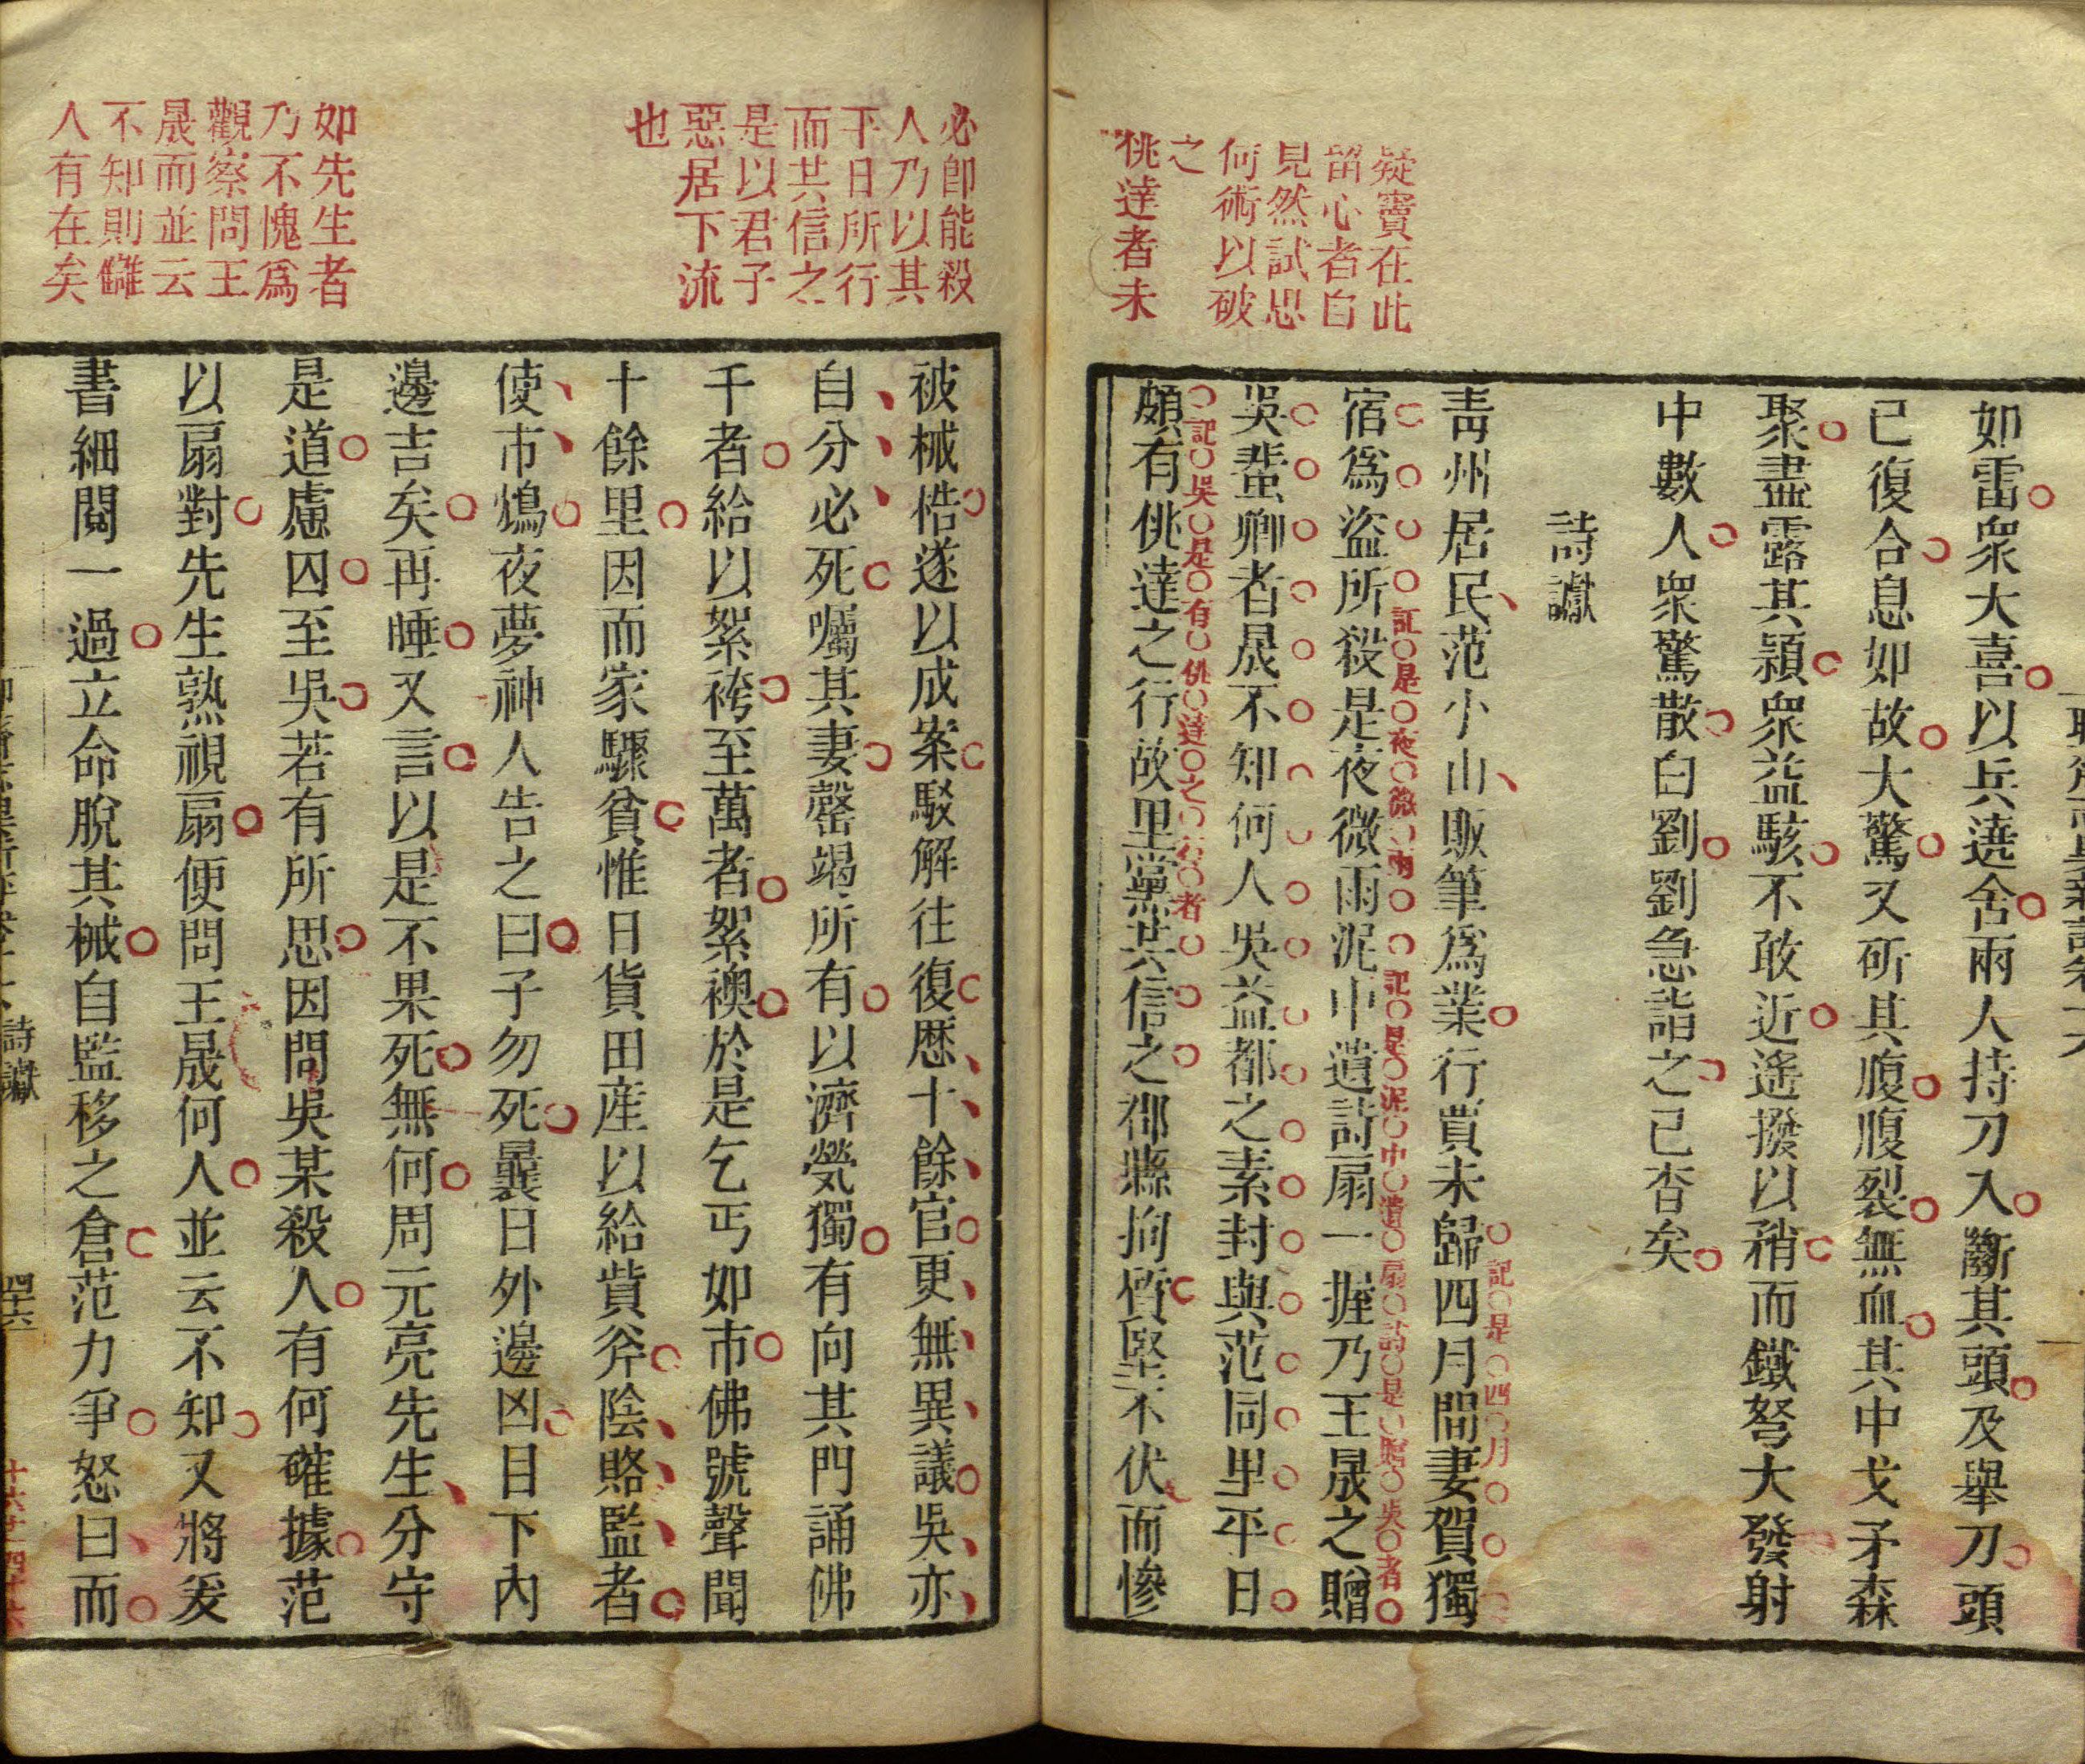 疑竇在此
留心者自
見然試思
何術以破
之
佻達者未
如雷衆大喜以兵遶舍兩人持刀入斷其頭及舉刀頭
已復合息如故大驚又斫其腹腹裂無血其中戈矛森
聚盡露其穎衆益駭不敢近遙撥以矟而鐵弩大發射
中數人衆驚散白劉劉急詣之已杳矣
詩讞
青州居民范小山販筆爲業行賈未歸四月間妻賀獨
記是四月
宿爲盜所殺是夜微雨泥中遺詩扇一握乃王晟之贈
記是夜微雨記是泥中遺扇詩是贈吳者
吳蜚卿者晟不知何人吳益都之素封與范同里平日
記吳是有佻達之行者
頗有佻達之行故里黨共信之郡縣拘質堅不伏而慘
必卽能殺
人乃以其
平日所行
而共信之
是以君子
惡居下流
也
如先生者
乃不愧爲
觀察問王
晟而並云
不知則讎
人有在矣
被械梏遂以成案駁解往復歷十餘官更無異議吳亦
自分必死囑其妻罄竭所有以濟煢獨有向其門誦佛
千者給以絮袴至萬者絮襖於是乞丐如市佛號聲聞
十餘里因而家驟貧惟日貨田産以給貲斧陰賂監者
使市鴆夜夢神人告之曰子勿死曩日外邊凶目下內
邊吉矣再睡又言以是不果死無何周元亮先生分守
是道慮囚至吳若有所思因問吳某殺人有何確據范
以扇對先生熟視扇便問王晟何人並云不知又將爰
書細閱一過立命脫其械自監移之倉范力爭怒曰而
詩讞
四十六